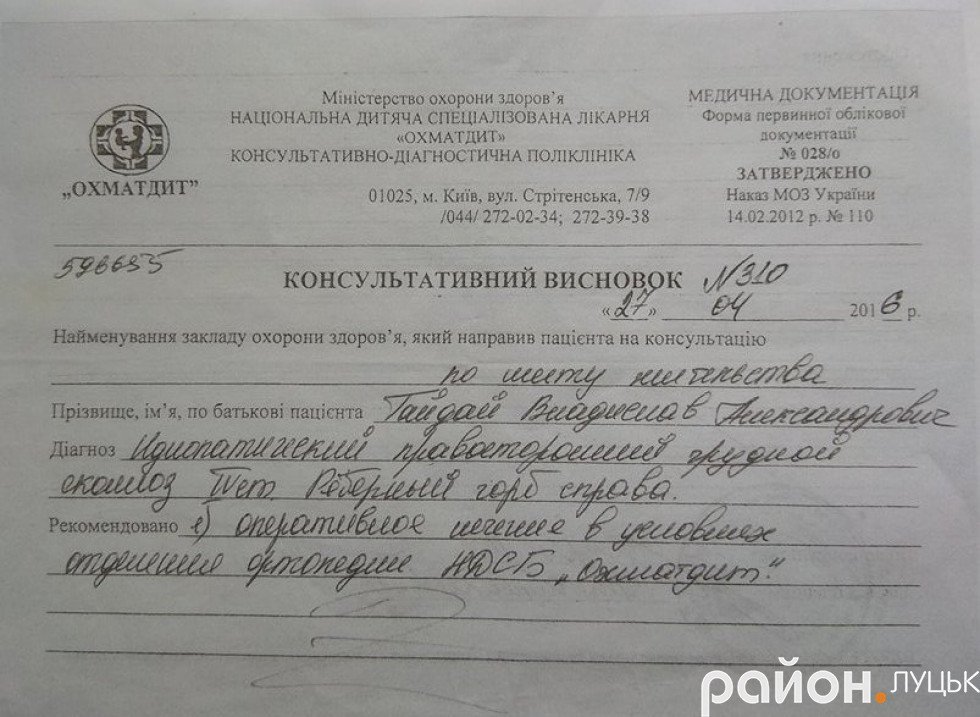 Міністерство охорони здоров'я
НАЦІОНАЛЬНА ДИТЯЧА СПЕЦІАЛІЗОВАНА ЛІКАРНЯ
«ОХМАТДИТ»
КОНСУЛЬТАТИВНО-ДІАГНОСТИЧНА ПОЛІКЛІНІКА
01025, м. Київ, вул. Стрітенська, 7/9
/044/ 272-02-34; 272-39-38
„ОХМАТДИТ”
МЕДИЧНА ДОКУМЕНТАЦІЯ
Форма первинної облікової
документації
№ 028/о
ЗАТВЕРДЖЕНО
Наказ МОЗ України
14.02.2012 р. № 110
КОНСУЛЬТАТИВНИЙ ВИСНОВОК N310
«27» 04 2016 р.
Найменування закладу охорони здоров'я, який направив пацієнта на консультацію
по месту жительства
Прізвище, ім'я, по батькові пацієнта Гайдай Владислав Александрович
Діагноз Идиопатический правосторонний грудной
сколиоз IV ст. Реберный горб справа.
Рекомендовано 1) оперативное лечение в условиях
отделения ортопедии НДСБ „Охматдит".
район.ЛУЦЬК